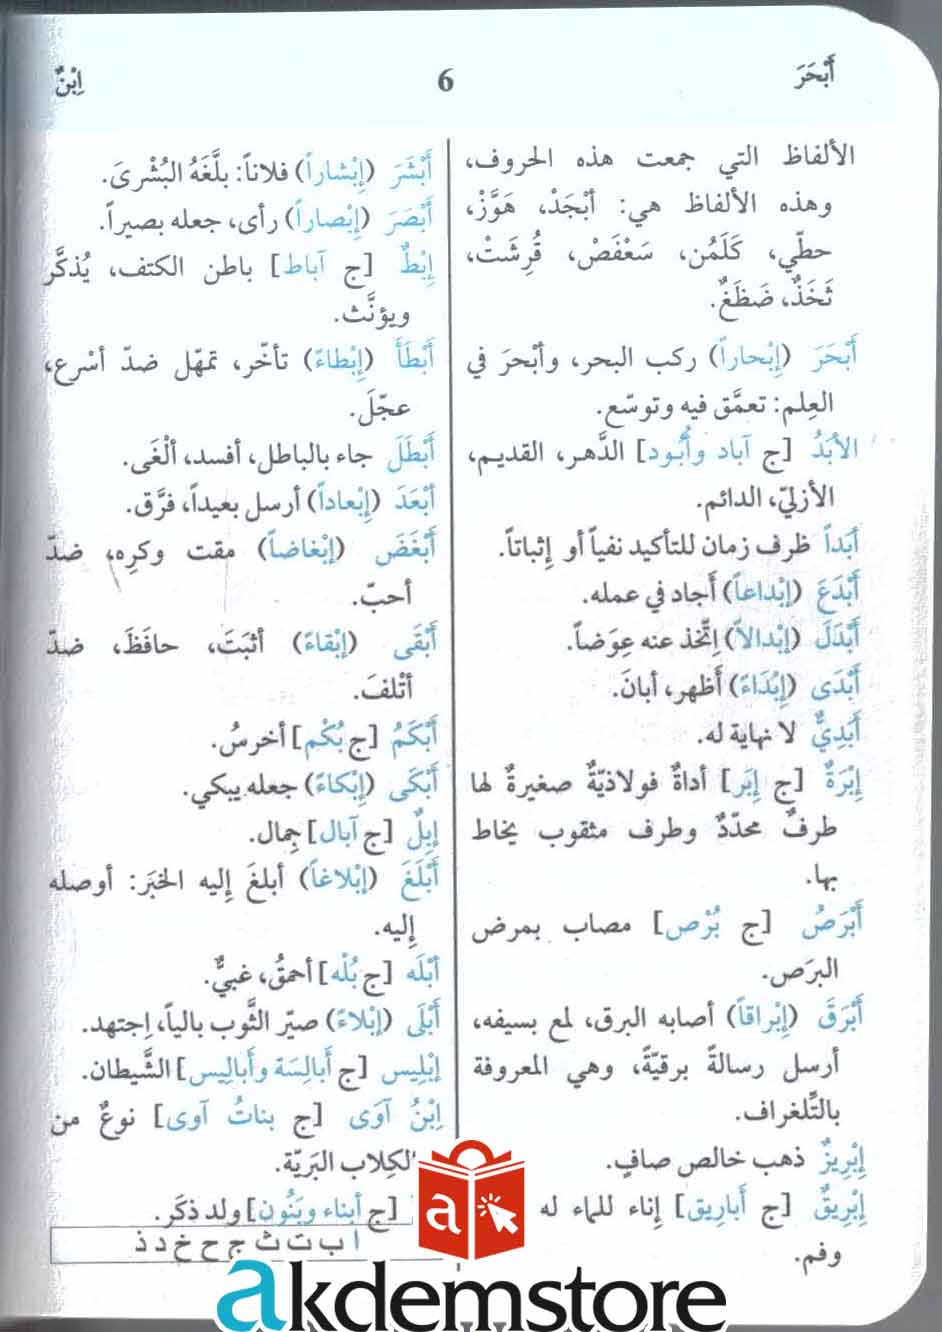 أَبْحَرَ
6
اِبْنٌ
الألفاظ التي جمعت هذه الحروف،
وهذه الألفاظ هي: أبْجَدْ، هَوَّزْ،
حطّي، كَلَمُن، سَعْفَصْ، قُرِشَتْ،
ثَخَذٌ، ضَظَغٌ.
أَبْحَرَ (إبْحاراً) ركب البحر، وأبْحرَ في
العِلم: تعمَّق فيه وتوسّع.
الأَبَدُ [ج آباد وأُبُود] الدَّهر، القديم،
الأزليّ، الدائم.
أَبَداً ظرف زمان للتأكيد نفياً أو إِثباتاً.
أَبْدَعَ (إبْداعاً) أَجاد في عمله.
أَبْدَلَ (إبْدالاً) اِتّخذ عنه عِوَضاً.
أَبْدَى (إبْدَاءً) أَظهر، أبانَ.
أَبَدِيٌّ لا نهاية له.
إبْرَةٌ [ج إبَر] أداةٌ فولاذيّةٌ صغيرةٌ لها
طرفٌ محدّدٌ وطرف مثقوب يخاط
بها.
أَبْرَصُ [ج بُرْص] مصاب بمرض
البرَص.
أَبْرَقَ (إبْراقاً) أصابه البرق، لمع بسيفه،
أرسل رسالةً برقيّةً، وهي المعروفة
بالتِّلغراف.
إبْرِيزٌ ذهب خالص صافٍ.
إبْرِيقٌ [ج أبارِيق] إِناء للماء له
وفم.
أَبْشَرَ (إبْشاراً) فلاناً: بلَّغَهُ البُشْرىَ.
أَبْصَرَ (إبْصاراً) رأى، جعله بصيراً.
إبْطٌ [ج آباط] باطن الكتف، يُذكَّر
ويؤنَّث.
أَبْطَأَ (إبْطاءً) تأخّر، تمهّل ضدّ أسْرع،
عجّلَ.
أَبْطَلَ جاء بالباطل، أفسد، ألْغَى.
أبْعَدَ (إبْعاداً) أرسل بعيداً، فرَّق.
أَبْغَضَ (إبْغاضاً) مقت وكرِه، ضدّ
أحبّ.
أَبْقَى (إبْقاءً) أثبَتَ، حافَظَ، ضدّ
أتْلفَ.
أَبْكَمُ [ج بُكْم] أخرسُ.
أَبْكَى (إبْكاءً) جعله يبكي.
إبِلٌ [ج آبال] جِمال.
أَبْلَغَ (إبْلاغاً) أبلغَ إِليه الخبَر: أوصله
إِليه.
أَبْلَه [ج بُلْه] أحمقُ، غبيٌّ.
أَبْلَى (إبْلاءً) صيّر الثَّوب بالياً، اِجتهد.
إبْلِيس [ج أَبالِسَة وأَبالِيس] الشَّيطان.
اِبْنُ آوَى [ج بناتُ آوى] نوعٌ من
الكِلاب البَريّة.
[ج أبناء وبَنُون] ولد ذكَر.
ا ب ت ث ج ح خ د ذ
a
akdemstore